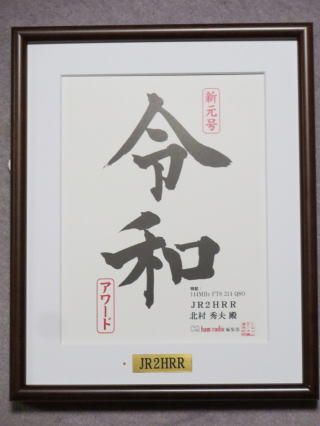 新元号
令和
アワード
特記:
144MHz FT8 214 QSO
JR2HRR
北村 秀夫 殿
CQ ham radio 編集部
JR2HRR